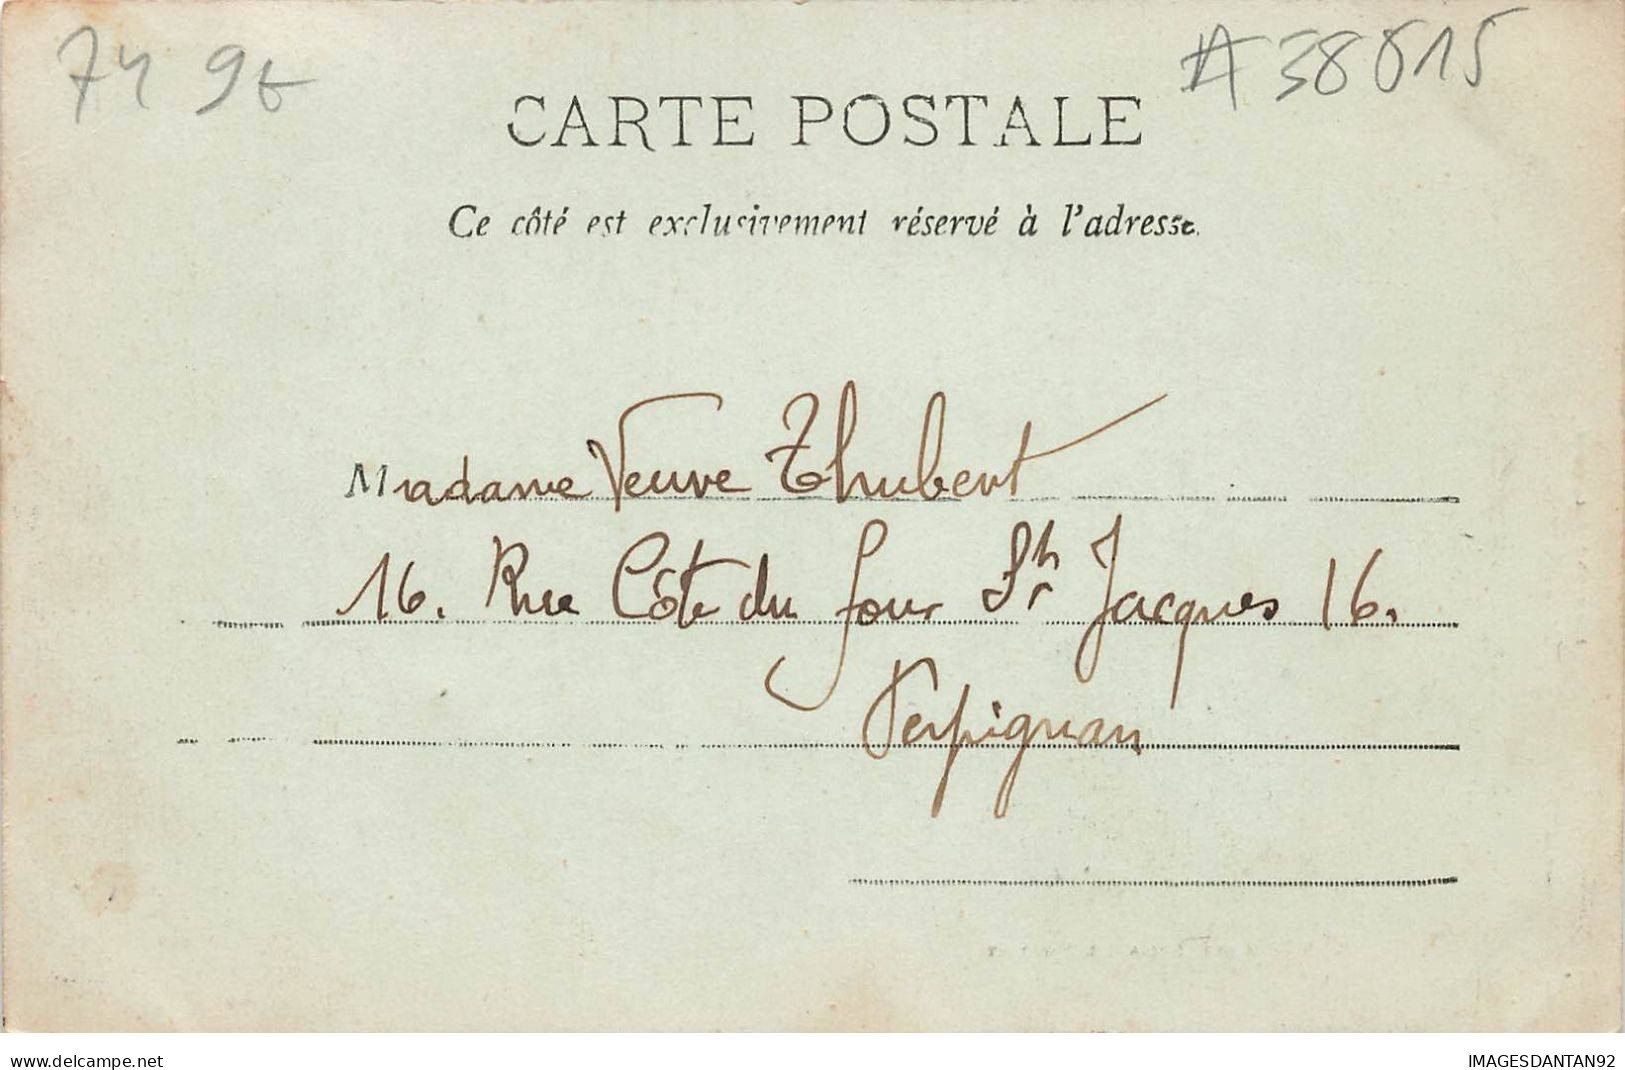 74 9t #38615
CARTE POSTALE
Ce côté est exclusivement réservé à l'adresse.
Madame Veuve Thubert
16. Rue Côte du four St Jacques 16.
Perpignan
www.delcampe.net IMAGESDANTAN92